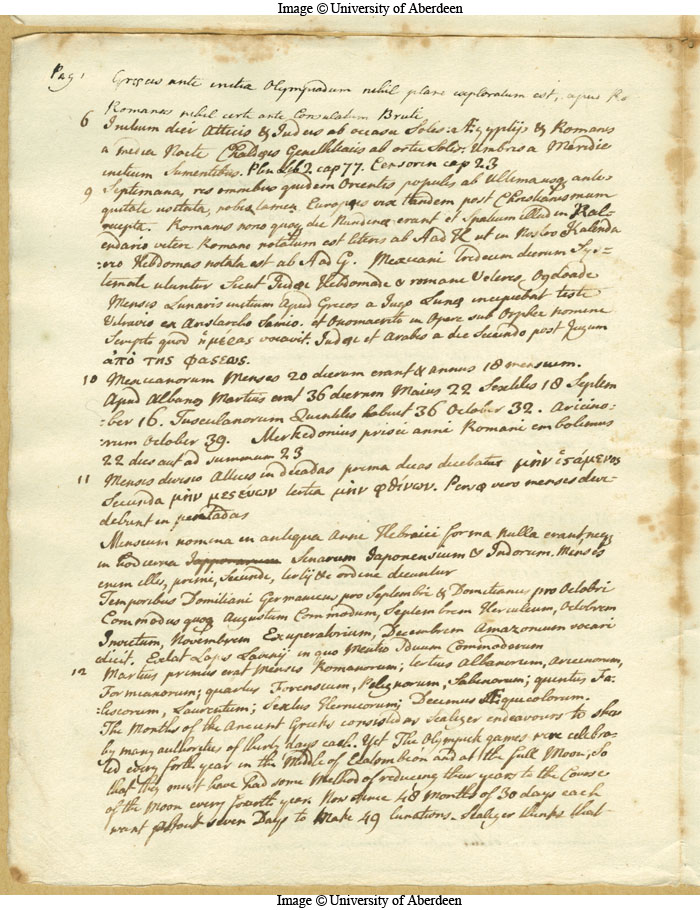 Image © University of Aberdeen
Pag 1 Græcis ante initia Olympiadum nihil plane exploratum est, apud Ro
Romanos nihil certi ante Consulatum Bruti
6 Initium diei Atticis & Judæis ab occasu Solis: Ægyptijs & Romanis
a media Nocte Chaldæis Genethliacis ab ortu Solis. Umbris a Meridie
initium Sumentibus. Plin Lib 2. cap 77. Censorin cap 23
9 Septimana, res omnibus quidem Orientis populis ab Ultima usq ante-
quitate usitata, nobis tamen Europæis vix tandem post Christianismum
recepta. Romanis nono quoq die Nundinæ erant et Spatium illud in Kal-
endario vetere Romano notatum est literis ab A ad H ut in Nostro Kalenda
:rio Hebdomas notata est ab A ad G. Mexicani Tredecim dierum Sys=
temate utuntur Sicut Judæi Hebdomade & romani Veteres Ogdoade
Mensis Lunaris initium Apud Græcos a Jugo Lunæ incipiebat teste
Vitruvio ex Aristarcho Samio. et Onomacrito in Opere sub Orphei nomine
Scripto quod ἡμέρας vocavit. Judæi et Arabis a die Secundo post Jugum
ἀπό της φασεως.
10 Mexicanorum Menses 20 dierum erant & annus 18 mensium.
Apud Albanos Martius erat 36 dierum Maius 22 Sextilis 18 Septem
:ber 16. Tusculanorum Quintilis habuit 36 October 32. Aricino-
:rum October 39. Merkedonius prisci anni Romani embolimus
22 dies aut ad summum 23
11 Mensis divisio Atticis in decadas prima decas dicebatur μὴν ἱσάμενος
Secunda μὴν μεσενων tertia μὴν φθίνων. Persæ vero menses divi-
debant in pentadas
Mensium nomina in antiqua Anni Hebraici forma nulla erant, neq
in hodierna Sinarum Japonensium & Indorum. Menses
enim illis, primi, Secundi, tertij &c ordine dicuntur
Temporibus Domitiani Germanicus pro Septembri & Domitianus pro Octobri
Commodus quoq Augustum Commodum, Septembrem Herculeum, Octobrem
Invictum, Novembrem Exuperatorium, Decembrem Amazonium vocari
dicit. Extat Lapis Lanuvij in quo Mentio Iduum Commodarum
12 Martius primus erat Mensis Romanorum; tertius Albanorum, Aricinorum,
Formianorum; quartus Forensium, Pelignorum, Sabinorum; quintus Fa-
:liscorum, Laurentum; Sextus Hernicorum; Decimus Æquicolorum.
The Months of the Ancient Greeks consisted as Scaliger endeavours to shew
by many authorities of thirty days each. Yet The Olympick games were celebra-
ted every forth year in the Middle of Ecatombeon and at the full Moon; So
that they must have had some Method of reducing their years to the Course
of the Moon every fourth year. Now since 48 months of 30 days each
want about seven Days to Make 49 lunations. Scaliger thinks that
Image © University of Aberdeen